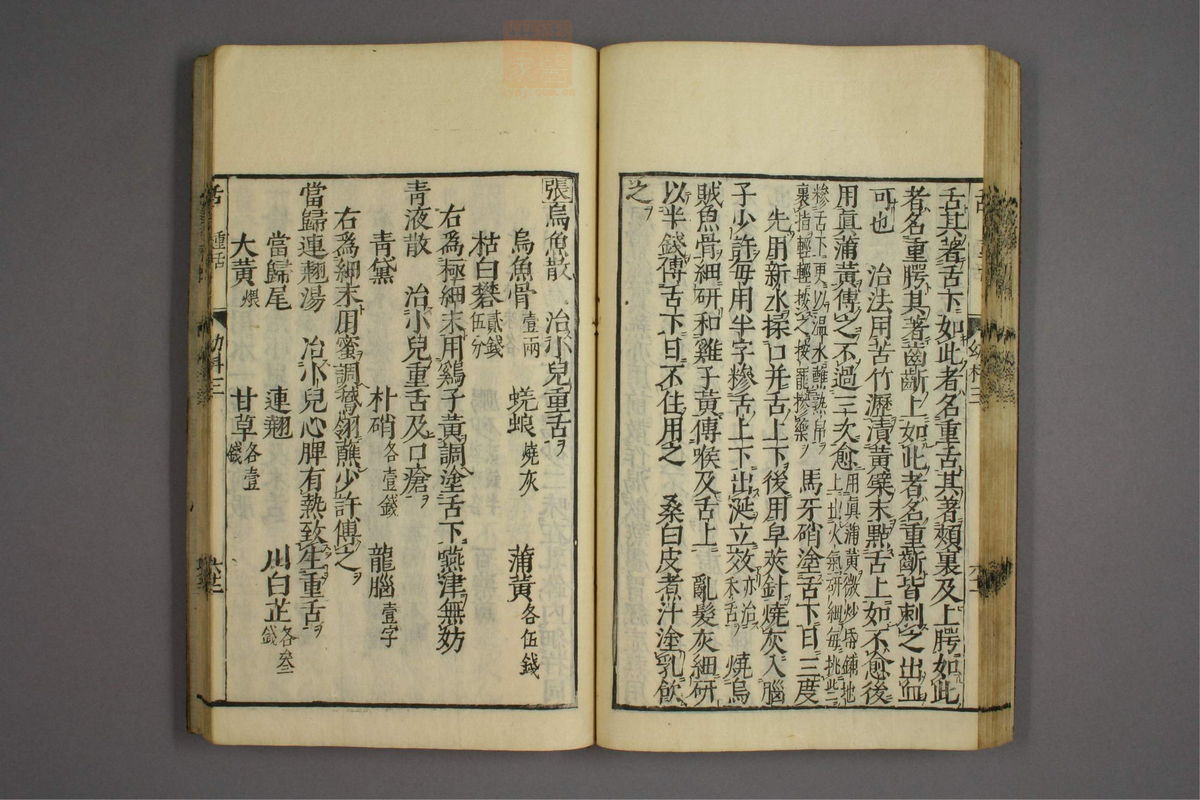 舌其著舌下如此者名重舌其著頰裏及上腭如此
者名重腭其著齒齗上如此者名重齗皆刺之出血
可也　治法用苦竹瀝漬黃蘗末點舌上如不愈後
用眞蒲黃傅之不過三次愈用眞蒲黃微炒
摻舌下更以溫水蘸
裹指輕輕按之按罷摻藥　馬牙硝塗舌下日三度
先用新水探口并舌上下後用皁莢針燒灰入腦
子少許每用半字摻舌上下出涎立效亦治木舌　燒烏
賊魚骨細研和雞子黃傅喉及舌上　亂髮灰細研
以半錢傅舌下日不住用之　桑白皮煮汁塗乳飲
之
張烏魚散　治小兒重舌
烏魚骨壹兩　蜣蜋燒灰　蒲黃各伍錢
枯白礬貳錢伍分
右爲極細末用鷄子黃調塗舌下嚥津無妨
青液散　治小兒重舌及口瘡
青黛　朴硝各壹錢　龍腦壹字
右爲細末用蜜調鵝翎蘸少許傅之
當歸連翹湯　治小兒心脾有熱致生重舌
當歸尾　連翹　川白芷各叄錢
大黃煨　甘草各壹錢
活　重舌　幼科三　六十二